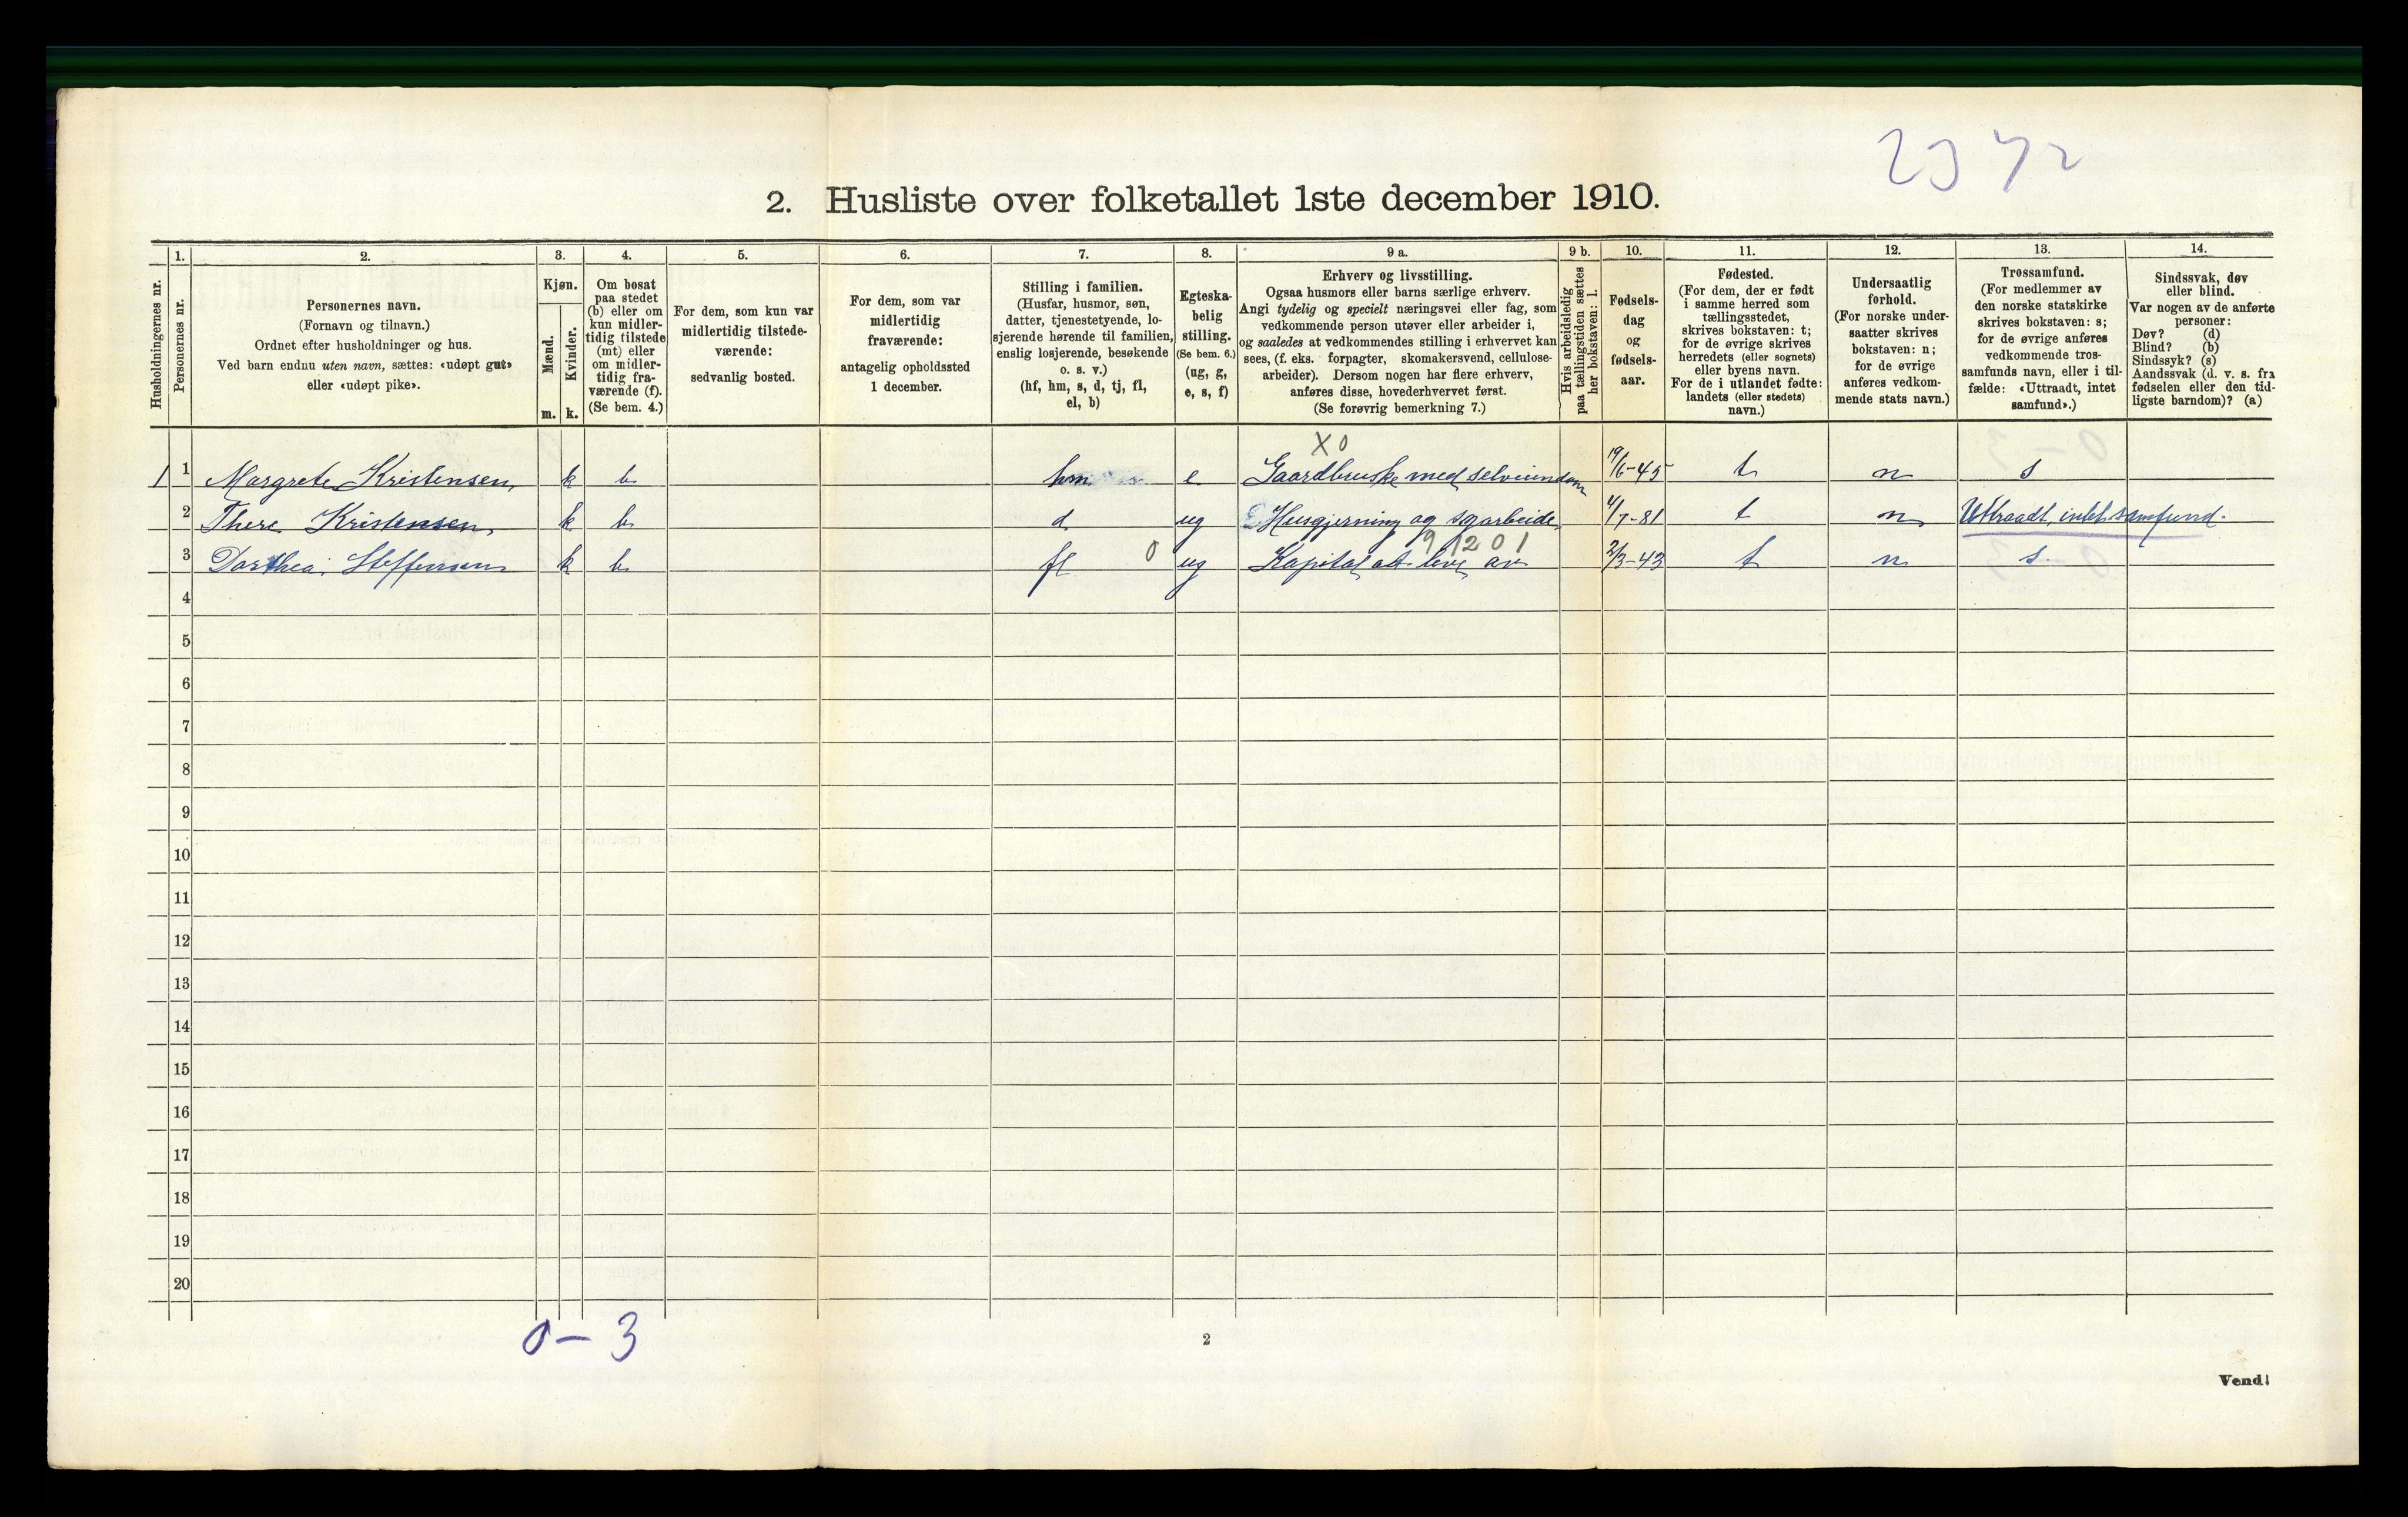 2372
2. Husliste over folketallet 1ste december 1910.
Husholdningernes nr.
1.
Personernes nr.
2.
Personernes navn.
(Fornavn og tilnavn.)
Ordnet efter husholdninger og hus.
Ved barn endnu uten navn, sættes: «udøpt gut»
eller «udøpt pike».
3.
Kjøn.
Mænd.
Kvinder.
m. k.
4.
Om bosat
paa stedet
(b) eller om
kun midler-
tidig tilstede
(mt) eller
om midler-
tidig fra-
værende (f).
(Se bem. 4.)
5.
For dem, som kun var
midlertidig tilstede-
værende:
sedvanlig bosted.
6.
For dem, som var
midlertidig
fraværende:
antagelig opholdssted
1 december.
7.
Stilling i familien.
(Husfar, husmor, søn,
datter, tjenestetyende, lo-
sjerende hørende til familien,
enslig losjerende, besøkende
o. s. v.)
(hf, hm, s, d, tj, fl,
el, b)
8.
Egteska-
belig
stilling.
(Se bem. 6.)
(ug, g,
e, s, f)
9 a.
Erhverv og livsstilling.
Ogsaa husmors eller barns særlige erhverv.
Angi tydelig og specielt næringsvei eller fag, som
vedkommende person utøver eller arbeider i,
og saaledes at vedkommendes stilling i erhvervet kan
sees, (f. eks. forpagter, skomakersvend, cellulose-
arbeider). Dersom nogen har flere erhverv,
anføres disse, hovederhvervet først.
(Se forøvrig bemerkning 7.)
9 b.
Hvis arbeidsledig
paa tællingstiden sættes
her bokstaven: l.
10.
Fødsels-
dag
og
fødsels-
aar.
11.
Fødested.
(For dem, der er født
i samme herred som
tællingsstedet,
skrives bokstaven: t;
for de øvrige skrives
herredets (eller sognets)
eller byens navn.
For de i utlandet fødte:
landets (eller stedets)
navn.)
12.
Undersaatlig
forhold.
(For norske under-
saatter skrives
bokstaven: n;
for de øvrige
anføres vedkom-
mende stats navn.)
13.
Trossamfund.
(For medlemmer av
den norske statskirke
skrives bokstaven: s;
for de øvrige anføres
vedkommende tros-
samfunds navn, eller i til-
fælde: «Uttraadt, intet
samfund».)
14.
Sindssvak, døv
eller blind.
Var nogen av de anførte
personer:
Døv? (d)
Blind? (b)
Sindssyk? (s)
Aandssvak (d. v. s. fra
fødselen eller den tid-
ligste barndom)? (a)
X 0
1 1 Margrete Kristensen, k b hm e Gaardbruk med selveiendom 19/6-45 t n s
2 There Kristensen, k b d ug Husgjerning og syarbeide 4/7-81 t n Uttraadt, intet samfund.
0 9 1201
3 Dorthea Steffensen k b fl ug Kapital at leve av 2/3-43 t n s.
4
5
6
7
8
9
10
11
12
13
14
15
16
17
18
19
20
0-3
2
Vend!